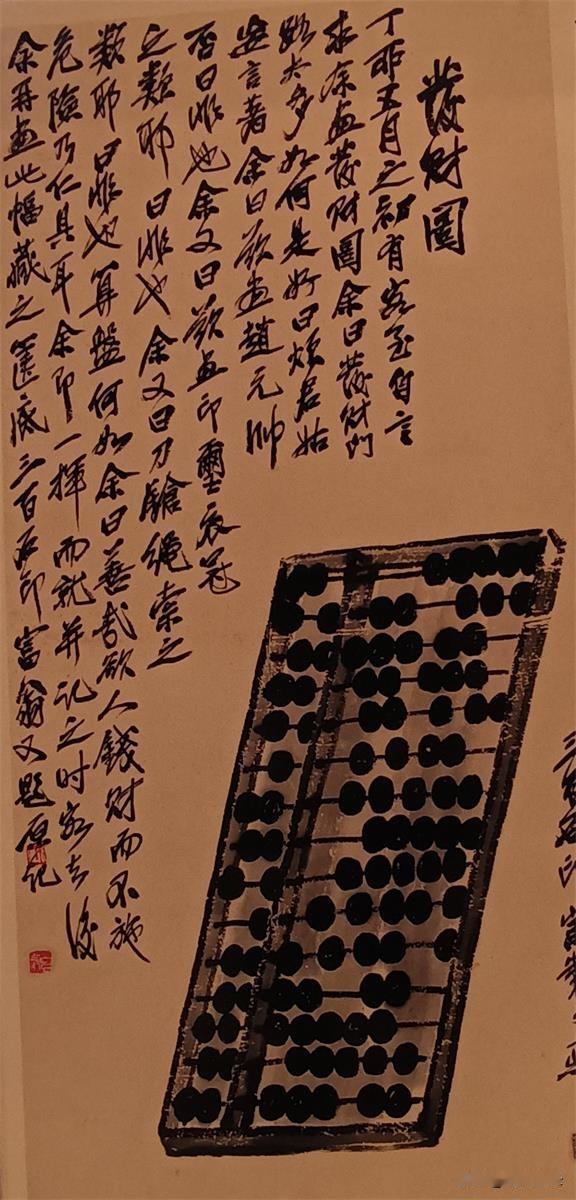 發財圖
丁卯五月之初有客至自言
求余畫發財圖余曰發財門
路太多如何是好曰煩君姑
妄言著余曰欲畫趙元帥
否曰非也余又曰欲畫印璽衣冠
之類耶曰非也余又曰刀鎗繩索之
類耶曰非也算盤何如余曰善哉欲人錢財而不施
危險乃仁具耳余即一揮而就并記之時客去後
余再畫此幅藏之篋底三百石印富翁又題原記
三百石印富翁